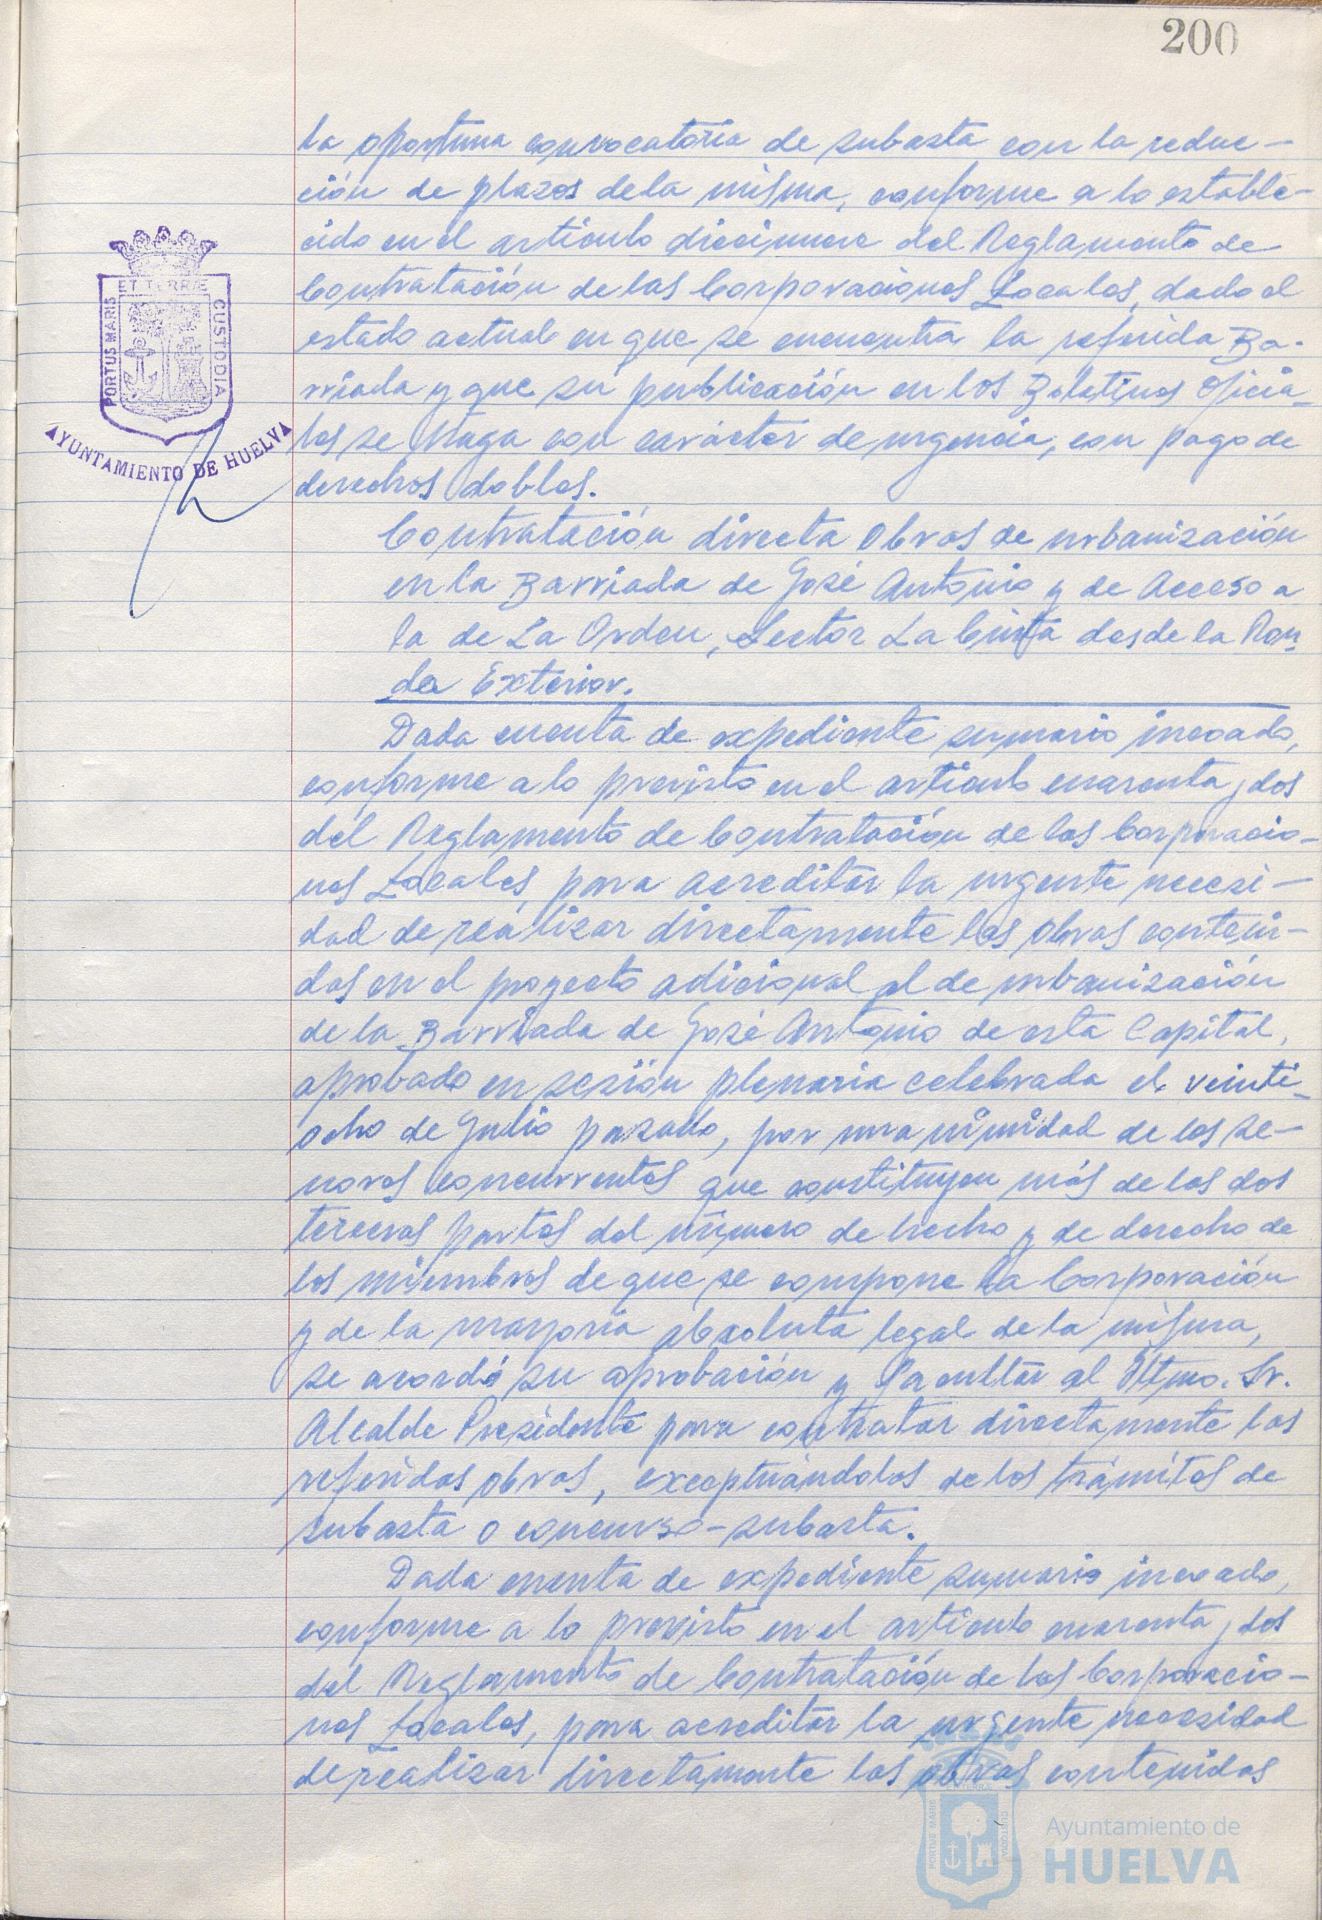 200
la oportuna convocatoria de subasta con la reduc-
ción de plazos de la misma, conforme a lo estable-
cido en el artículo diecinueve del Reglamento de
Contratación de las Corporaciones Locales, dado el
estado actual en que se encuentra la referida Ba-
rriada y que su publicación en los Boletines Oficia-
les se haga con carácter de urgencia, con pago de
derechos dobles.
ET TERRÆ
PORTUS MARIS
CUSTODIA
AYUNTAMIENTO DE HUELVA
Contratación directa Obras de urbanización
en la Barriada de José Antonio y de Acceso a
la de La Orden, Sector La Cinta desde la Ron-
da Exterior.
Dada cuenta de expediente sumario incoado,
conforme a lo previsto en el artículo cuarenta y dos
del Reglamento de Contratación de las Corporacio-
nes Locales, para acreditar la urgente necesi-
dad de realizar directamente las obras conteni-
das en el proyecto adicional al de urbanización
de la Barriada de José Antonio de esta Capital,
aprobado en sesión plenaria celebrada el veinti-
ocho de Julio pasado, por unanimidad de los se-
ñores concurrentes que constituyen más de las dos
terceras partes del número de hecho y de derecho de
los miembros de que se compone la Corporación
y de la mayoría absoluta legal de la misma,
se acordó su aprobación y facultar al Iltmo. Sr.
Alcalde Presidente para contratar directamente las
referidas obras, exceptuándolas de los trámites de
subasta o concurso-subasta.
Dada cuenta de expediente sumario incoado,
conforme a lo previsto en el artículo cuarenta y dos
del Reglamento de Contratación de las Corporacio-
nes Locales, para acreditar la urgente necesidad
de realizar directamente las obras contenidas
PORTUS MARIS
CUSTODIA
Ayuntamiento de
HUELVA